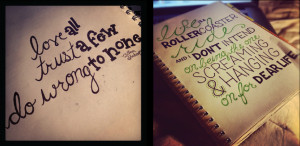 love all
trust a few
do wrong to none
ROLLERCOASTER
ride
AND I DON'T INTEND
on being the one
SCREAMING
& HANGING
on for DEAR LIFE